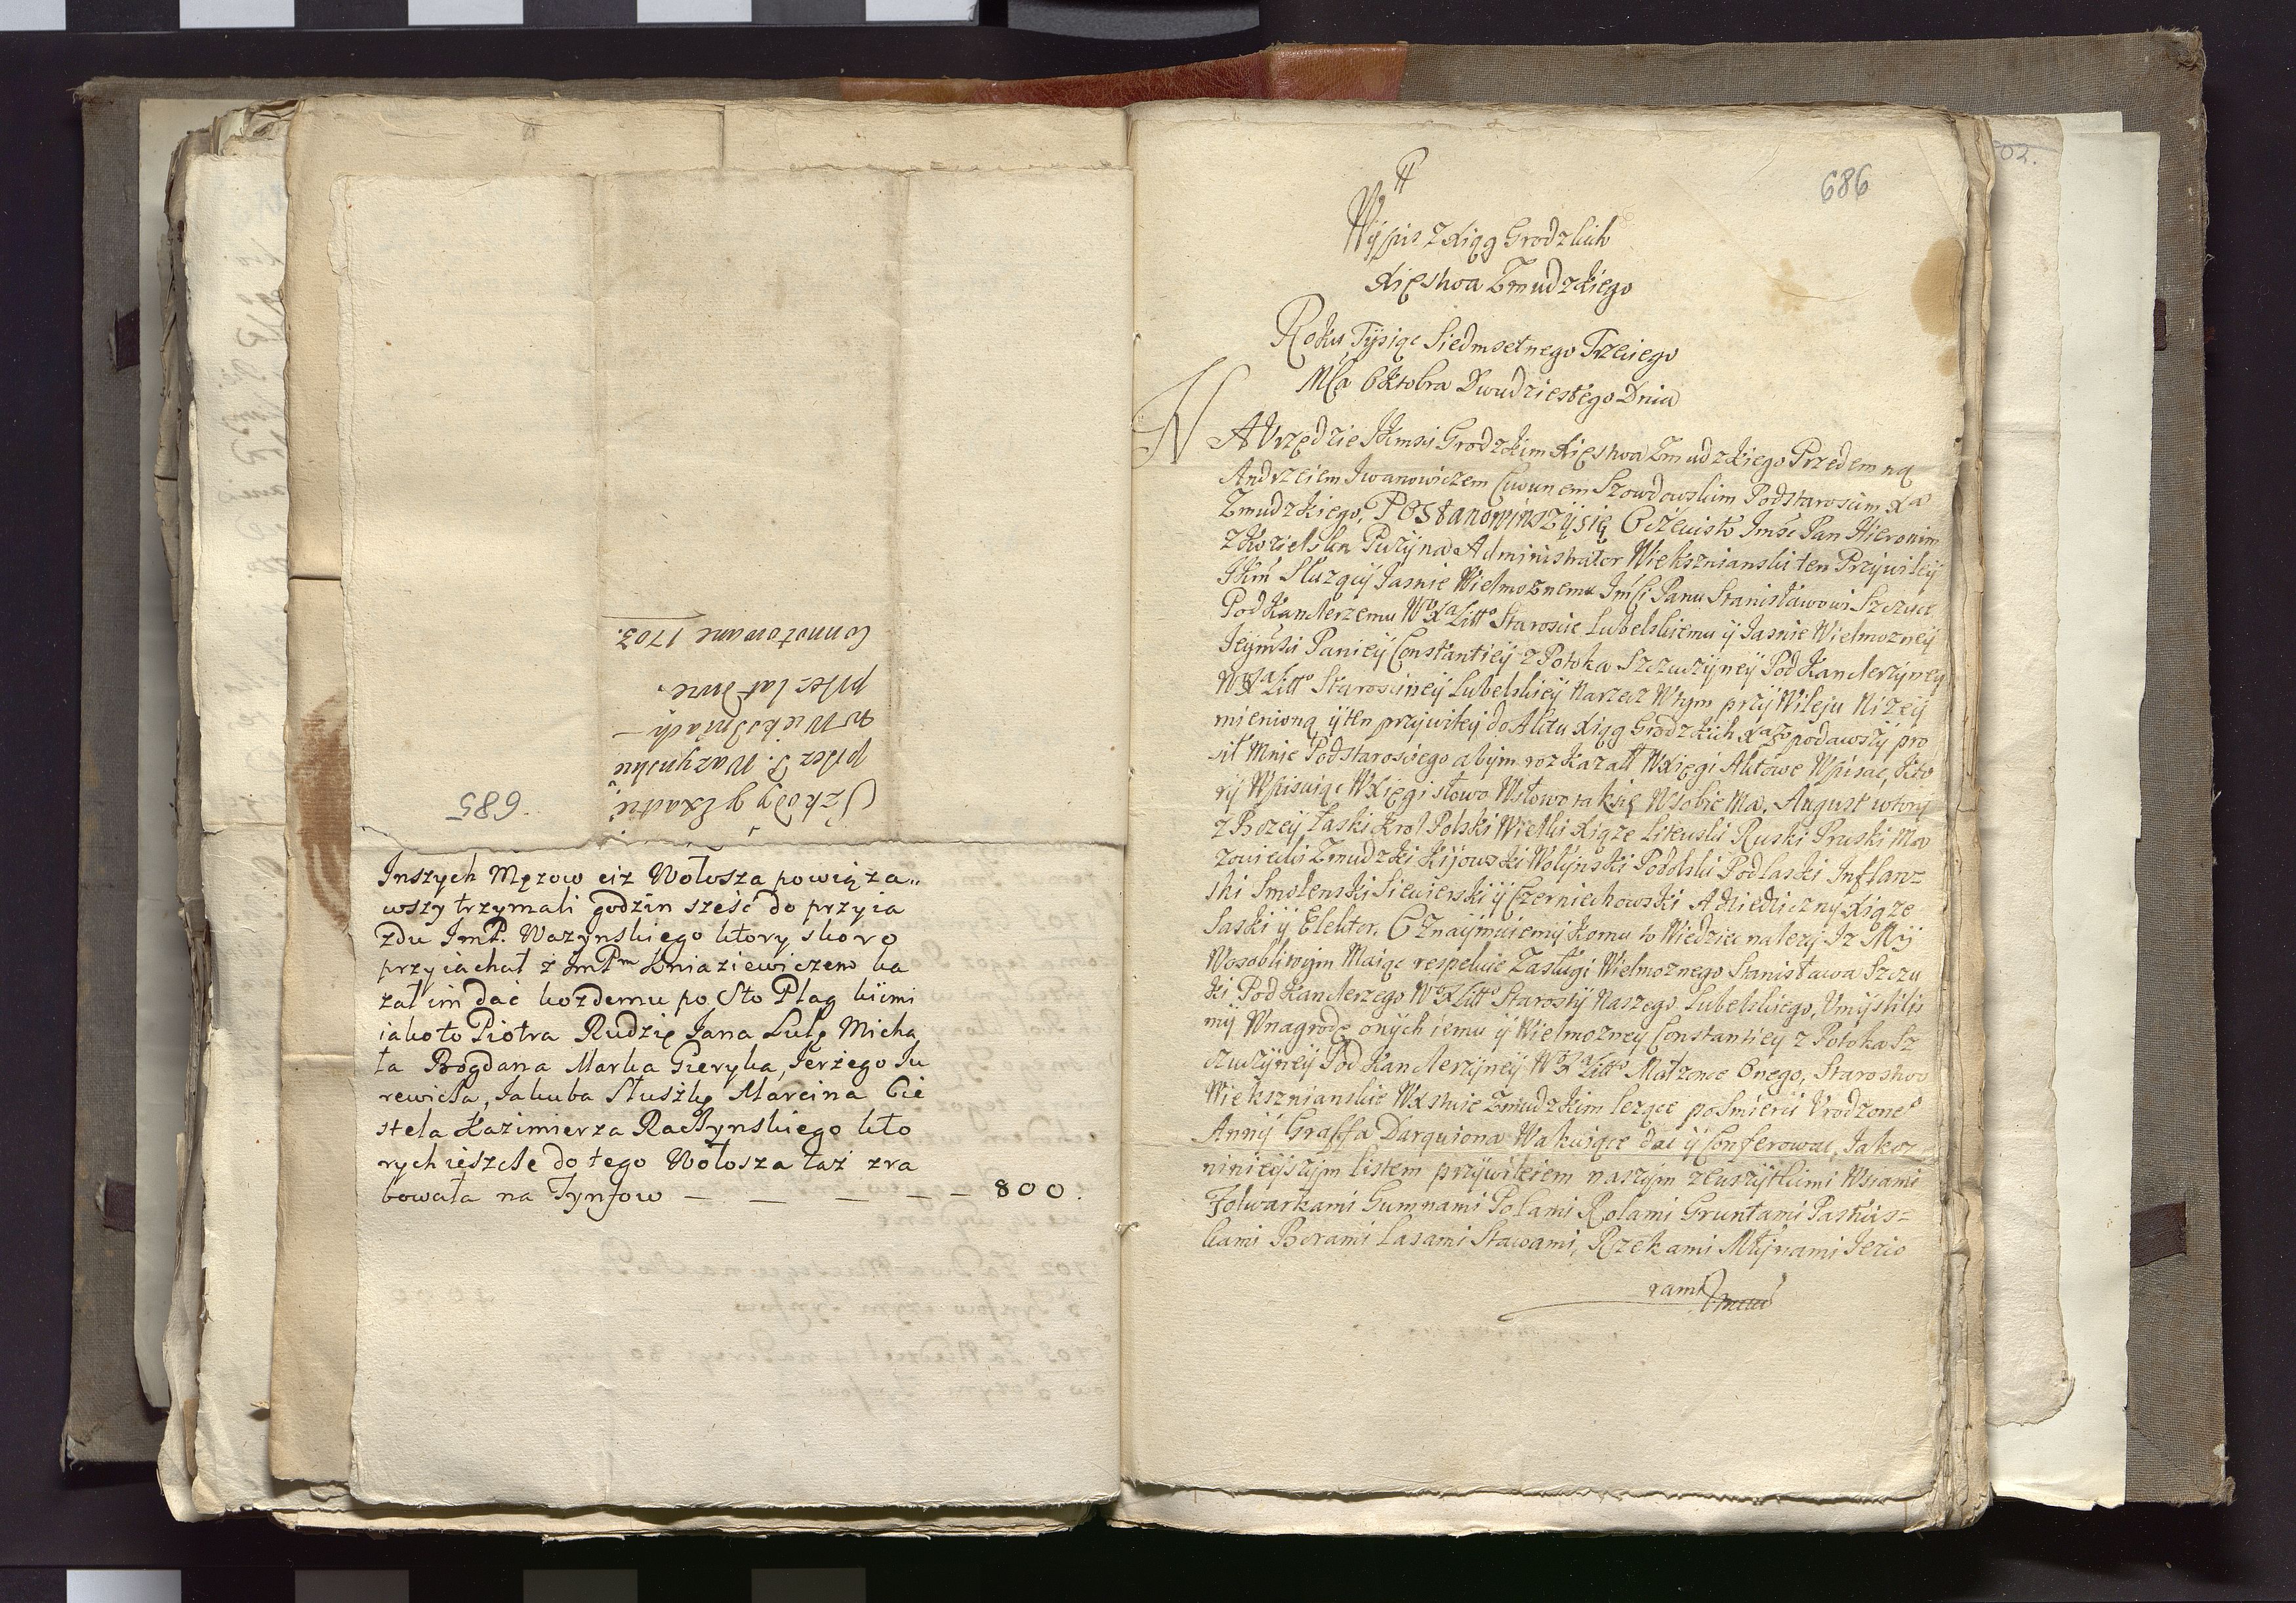 685
Szkody y Exactie
przez P. Wazynskie
w Wieksznach
przez lat dwie.
Connotowane 1703.
Inszych Męzow ciż Wołosza powiąza„
wszy trzymali godzin sześć do przyia
zdu ImP. Wazynskiego ktory skoro
przyiachał z ImPm Kniaziewiczem ka
zał im dać kozdemu po Sto Plag kiimi
iakoto Piotra Rudzię Jana Lulę Micha
ła Bogdana Marka Gieryka, Jerżego Ju
rewicza, Jakuba Słuszkę Marcina Cie
stela Kazimierza Raczynskiego kto
rych ieszcze do tego Wołosza taż zra
bowała na Tynfow — — — — — 800.
686
Wÿpis z Xiąg Grodzkich
Xięstwa Zmudzkiego
Roku Tÿsiąc Siedmsetnego Trzeciego
Mca Oktobra Dwudziestego Dnia
NA Vrzędzie JKmsci Grodzkim Xięstwa Zmudzkiego Przedemną
Andrzeiem Iwanowiczem Ciwunem Szowdowskim Podstaroscim Xa
Zmudzkiego, Postanowiwszÿ się Oczewisto Jmsc Pan Hieronim
z Kozielska Puzÿna Administrator Wiekszniański ten Przÿwileÿ
JKm Słuzącÿ Jasnie Wielmoznemu Jmsci Panu Stanisławowi Szczuce
PodKanclerzemu WoXaLitto Staroscie Lubelskiemu ÿ Jasnie Wielmozneÿ
Jeÿmsci Panieÿ Constantieÿ z Potoka Szczuczÿneÿ PodKanclerzÿneÿ
WXaLitto Staroscineÿ Lubelskieÿ Narzecz Wtym przÿWileju Nizeÿ
mienioną ÿ ten przÿwileÿ do Aktu Xiąg Grodzkich Xa Zo podawszÿ pro
sił Mnie Podstarosciego abÿm rozkazałł WXięgi Aktowe Wpisać, Kto
rÿ Wpisuiąc WXięgi słowo Wsłowo tak się Wsobie Ma. August wtorÿ
z Bozeÿ Łaski Krol Polski Wielki Xiąze Litewski Ruski Pruski Ma
zowiecki Zmudzki Kijowski Wołÿnski Podolski Podlaski Inflanz=
ski Smolenski Siewierski ÿ Czerniechowski A Dziedzicznÿ Xiąze
Saski ÿ Elektor. Oznaÿmuiemÿ Komu to Wiedziec nalezÿ Iz Mÿ
Wosobliwÿm Maiąc respekcie Zasługi Wielmoznego Stanisława Szczu
ki PodKanclerzego WoXLitto Starostÿ Naszego Lubelskiego, Vmÿslilis
mÿ Wnagrodę onÿch iemu ÿ Wielmozneÿ Constantieÿ z Potoka Sz
czuczÿneÿ PodKanclerzÿneÿ WXaLitto Małzonce Onego, Starostwo
Wiekszniańskie WXstwie Zmudzkim lezące po Smierci Vrodzoneÿ
Annÿ Graffa Darquiona Wakuiące dac ÿ Conferowac, Jakoz
ninieÿszÿm listem przÿwileiem naszÿm zewszÿtkiemi Wsiami
Folwarkami Gumnami Polami Rolami Gruntami Pastwis=
kami Borami Lasami Stawami, Rzekami Młÿnami Jezio
rami